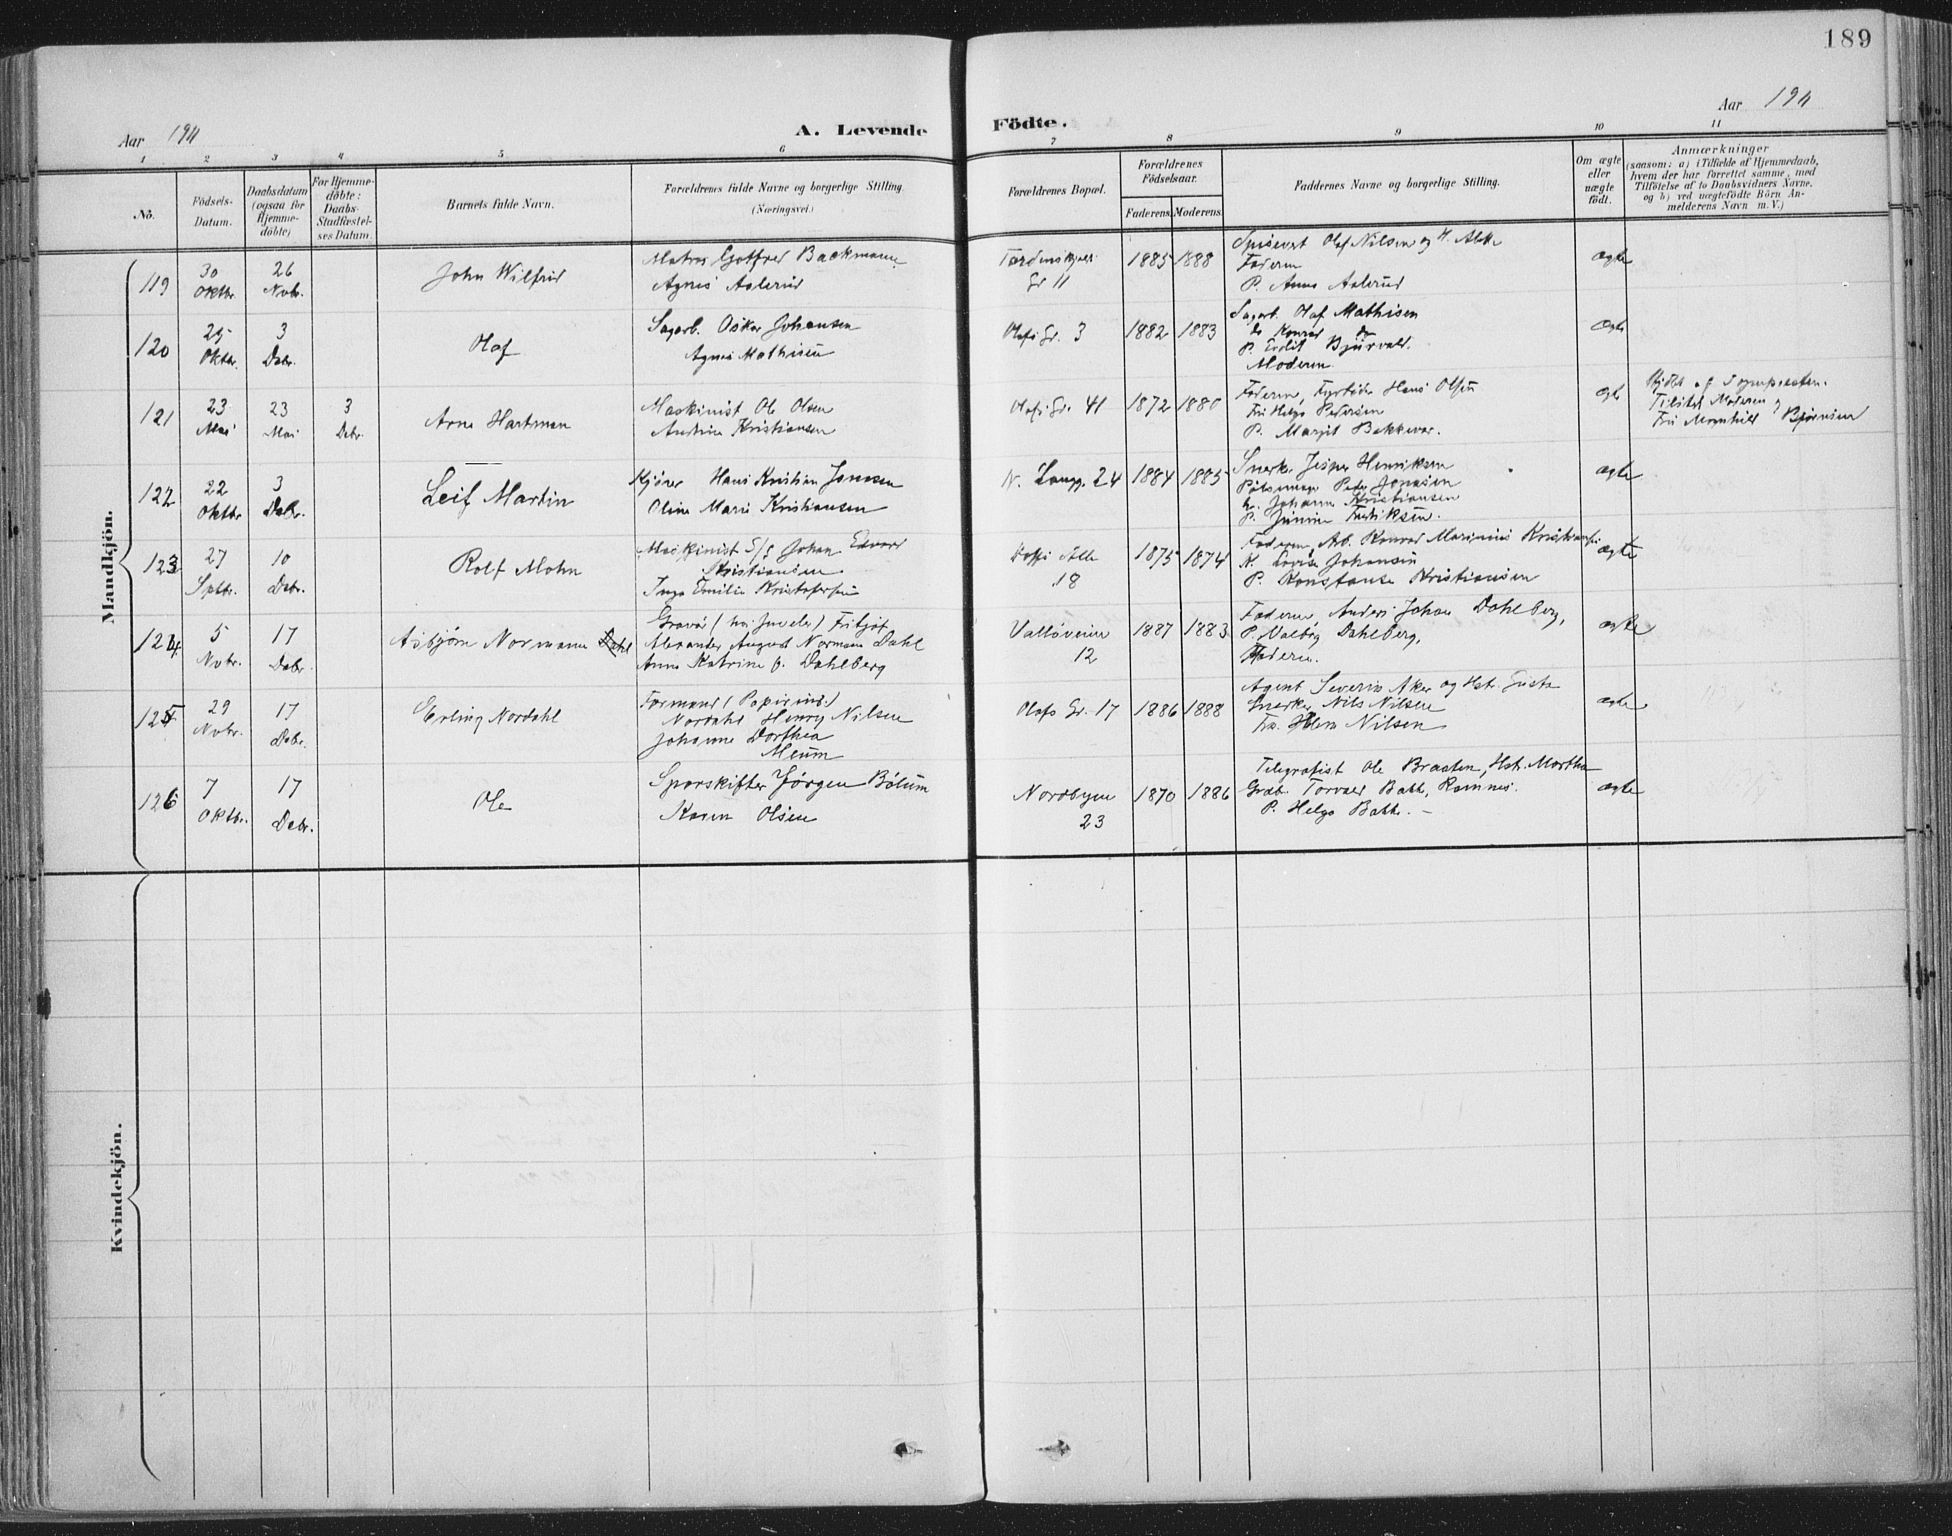 189
Aar 1911
A. Levende Födte.
Aar 1911
1 2 3 4 5 6 7 8 9 10 11
No.
Födsels-
Datum.
Daabsdatum
(ogsaa for
Hjemme-
döbte)
For Hjemme-
döbte:
Daabs-
Stadfæstel-
ses Datum.
Barnets fulde Navn.
Forældrenes fulde Navne og borgerlige Stilling.
(Næringsvei.)
Forældrenes Bopæl.
Forældrenes
Födselsaar.
Faderens Moderens
Faddernes Navne og borgerlige Stilling.
Om ægte
eller
uægte
födt.
Anmærkninger
(saasom: a) i Tilfælde af Hjemmedaab,
hvem der har forrettet samme, med
Tilföielse af to Daabsvidners Navne,
og b) ved uægtefödte Börn An-
melderens Navn m. V.)
Mandkjön.
119
30
Oktbr.
26
Novbr.
John Wilfrid
Matros Gotfred Backmann
Agnes Aslerud
Tordenskjolds
Gr 11
1885 1888
Olaf Nilsen og H.
Faderen
P. Anna Aslerud
ægte
120
25
Oktbr.
3
Debr.
Olaf
Sagarb. Oskar Johansen
Agnes Mathisen
Olafs Gr. 3
1882 1883
Sagarb. Olaf Mathisen
do Konrad do
P. Bjurvald.
Moderen
ægte
121
23
Mai
23
Mai
3
Debr.
Arne Hartman
Maskinist Ole Olsen
Andrine Kristiansen
Olafs Gr. 41
1872 1880
Faderen, Fyrbøder Hans Olsen
Fru Helga Pedersen
P. Margit Bakkevar.
ægte
Hjdbt af Sognepresten.
Tilstede Moderen og
Fru Bjørnsen
122
22
Oktbr
3
Debr.
Leif Martin
Kjører Hans Kristian Jonasen
Oline Marie Kristiansen
N. Langg. 24
1884 1885
Snerker Jesper Henriksen
Peter Jonasen
Johanne Kristiansen
P. Fredriksen.
ægte
123
27
Sptbr.
10
Debr.
Rolf Mohn
Maskinist S/S Johan Edvard
Kristiansen
Inga Emilie Kristofersen
Alle
18
1875 1874
Faderen, Arb. Konrad Marinius Kristiansen
K. Lovise Johansen
P. Konstanse Kristiansen
ægte
124
5
Novbr.
17
Debr.
Asbjørn Normann Dahl
Gravør (hos Juveler) Fritjof
Alexander August Norman Dahl
Anna Katrine f. Dahlberg
Valløveien
12
1887 1883
Faderen Anders Johan Dahlberg,
P. Valborg Dahlberg,
Faderen.
ægte
125
29
Novbr.
17
Debr.
Erling Nordahl
Formand (Papirind.)
Nordahl Henry Nilsen
Johanne Dorthea
Meum
Olafs Gr. 17
1886 1888
Agent Severin Aker og Hstr. Gusta
Snerker Nils Nilsen
Nilsen
ægte
126
7
Oktbr.
17
Debr.
Ole
Sporskifter Jørgen Bølum
Karen Olsen
Nordbyen
23
1870 1886
Telegrafist Ole Braaten, Hstr. Martha
Torvald Bakke, Ramnes.
P. Helga Bakke. —
ægte
Kvindekjön.